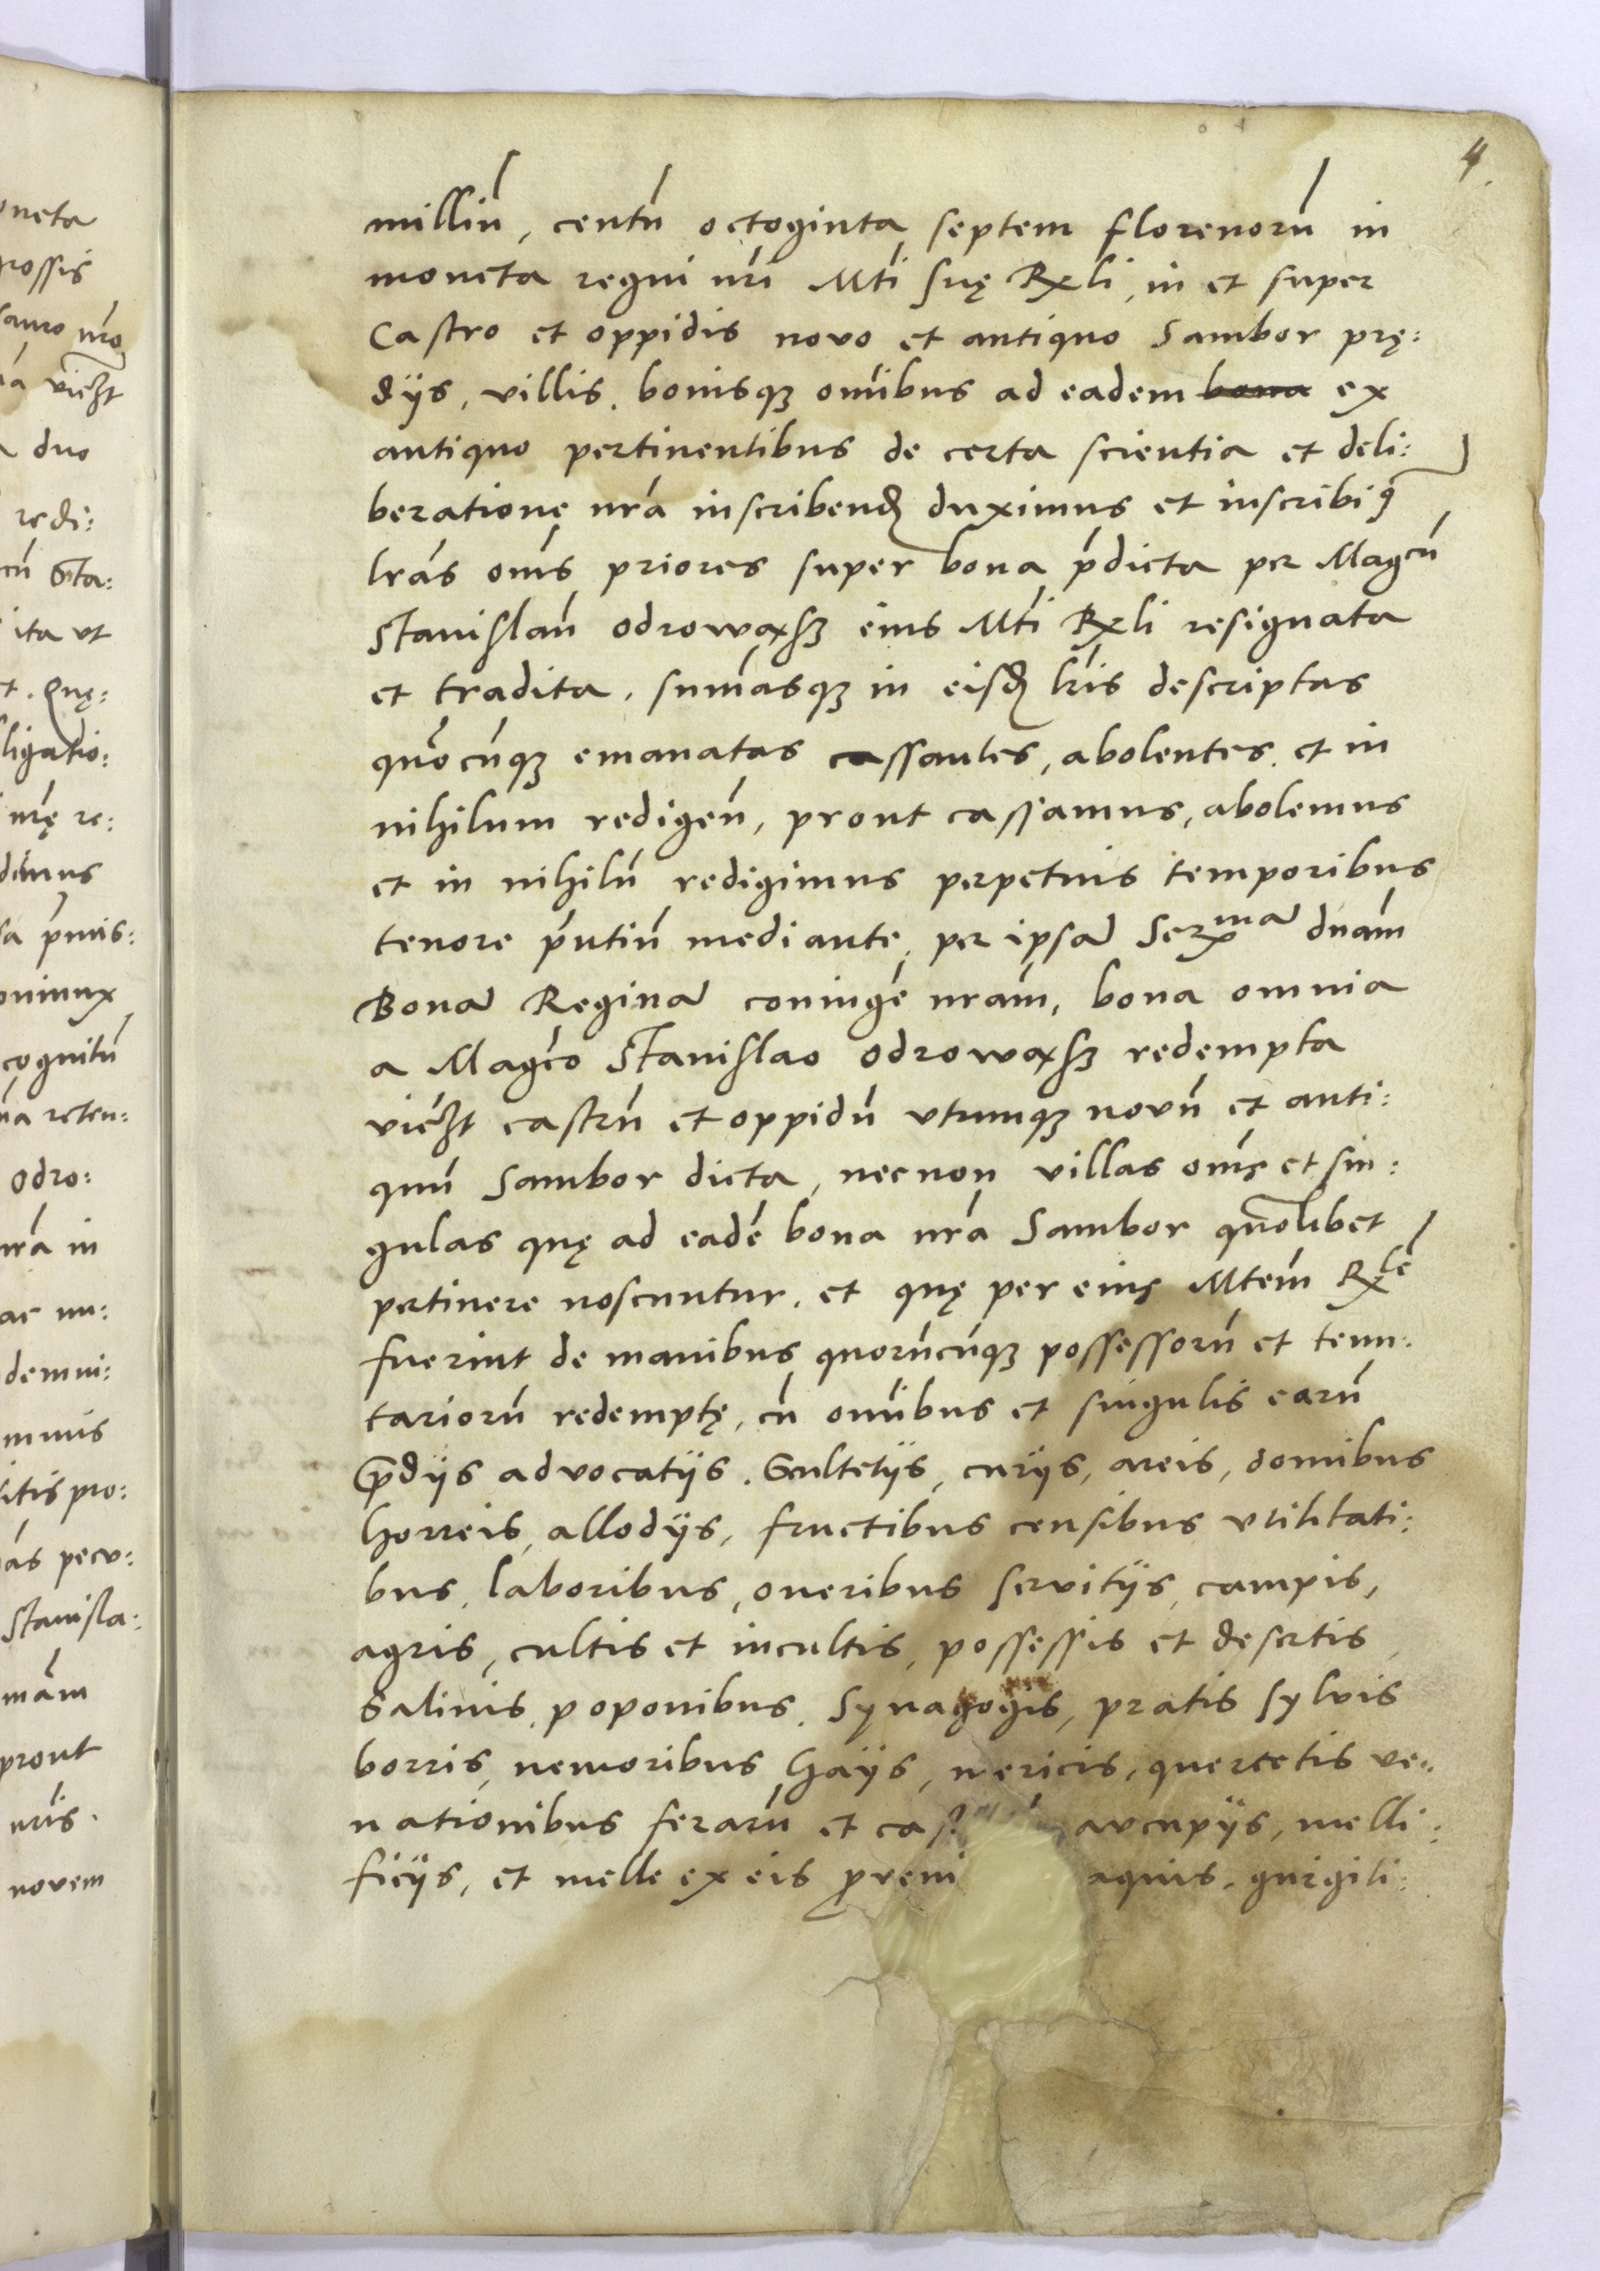 4
milliū, centū octoginta septem florenorū in
moneta regni nr̄i Mti suę Rxli, in et super
Castro et oppidis novo et antiquo Sambor prę:
dijs, villis, bonisqꝫ omībus ad eadem ex
antiquo pertinentibus de certa scientia et deli:
beratione nrā inscribend duximus et inscribiꝰ
lrās om̄s priores super bona p̄dicta per Magcū
Stanislaū Odrowąsz eius Mti Rxli resignata
et tradita, sum̄asqꝫ in eisd lrīs descriptas
quōcūqꝫ emanatas cassantes, abolentes, et in
nihilum redigen̄, prout cassamus, abolemus
et in nihilū redigimus perpetuis temporibus
tenore p̄ntiū mediante, per ipsā Serxmā dnām
Bonā Reginā coniugē nrām, bona omnia
a Magco Stanislao Odrowąsz redempta
viczt castrū et oppidū utrumqꝫ novū et anti:
quū Sambor dicta, necnon villas om̄s et sin:
gulas quę ad eadē bona nrā Sambor quolibet
pertinere noscuntur, et quę per eius Mtem Rxlē
fuerint de manibus quorūcūqꝫ possessorū et tenu:
tariorū redemptę, cū omībus et singulis earū
p̄dijs advocatijs, Scultetijs, curijs, areis, domibus
horreis, allodijs, fructibus censibus utilitati:
bus, laboribus, oneribus servitijs, campis,
agris, cultis et incultis, possessis et desertis,
Salinis, poponibus, Synagogis, pratis sylvis
borris, nemoribus Gajis, mericis, quercetis ve:
nationibus ferarū et cas aucupijs, melli:
ficijs, et melle ex eis proveni aquis, gurgiti:
oneta
grossis
sauro nrō
viczt
duo
redi:
cū Sta:
ita ut
Quę:
ligatio:
nrę re:
p̄mis:
coniunx
cognitū
reten:
Odro:
nrā in
ac in:
demni:
pro:
pecu:
Stanisla:
mām
prout
nrīs.
novem